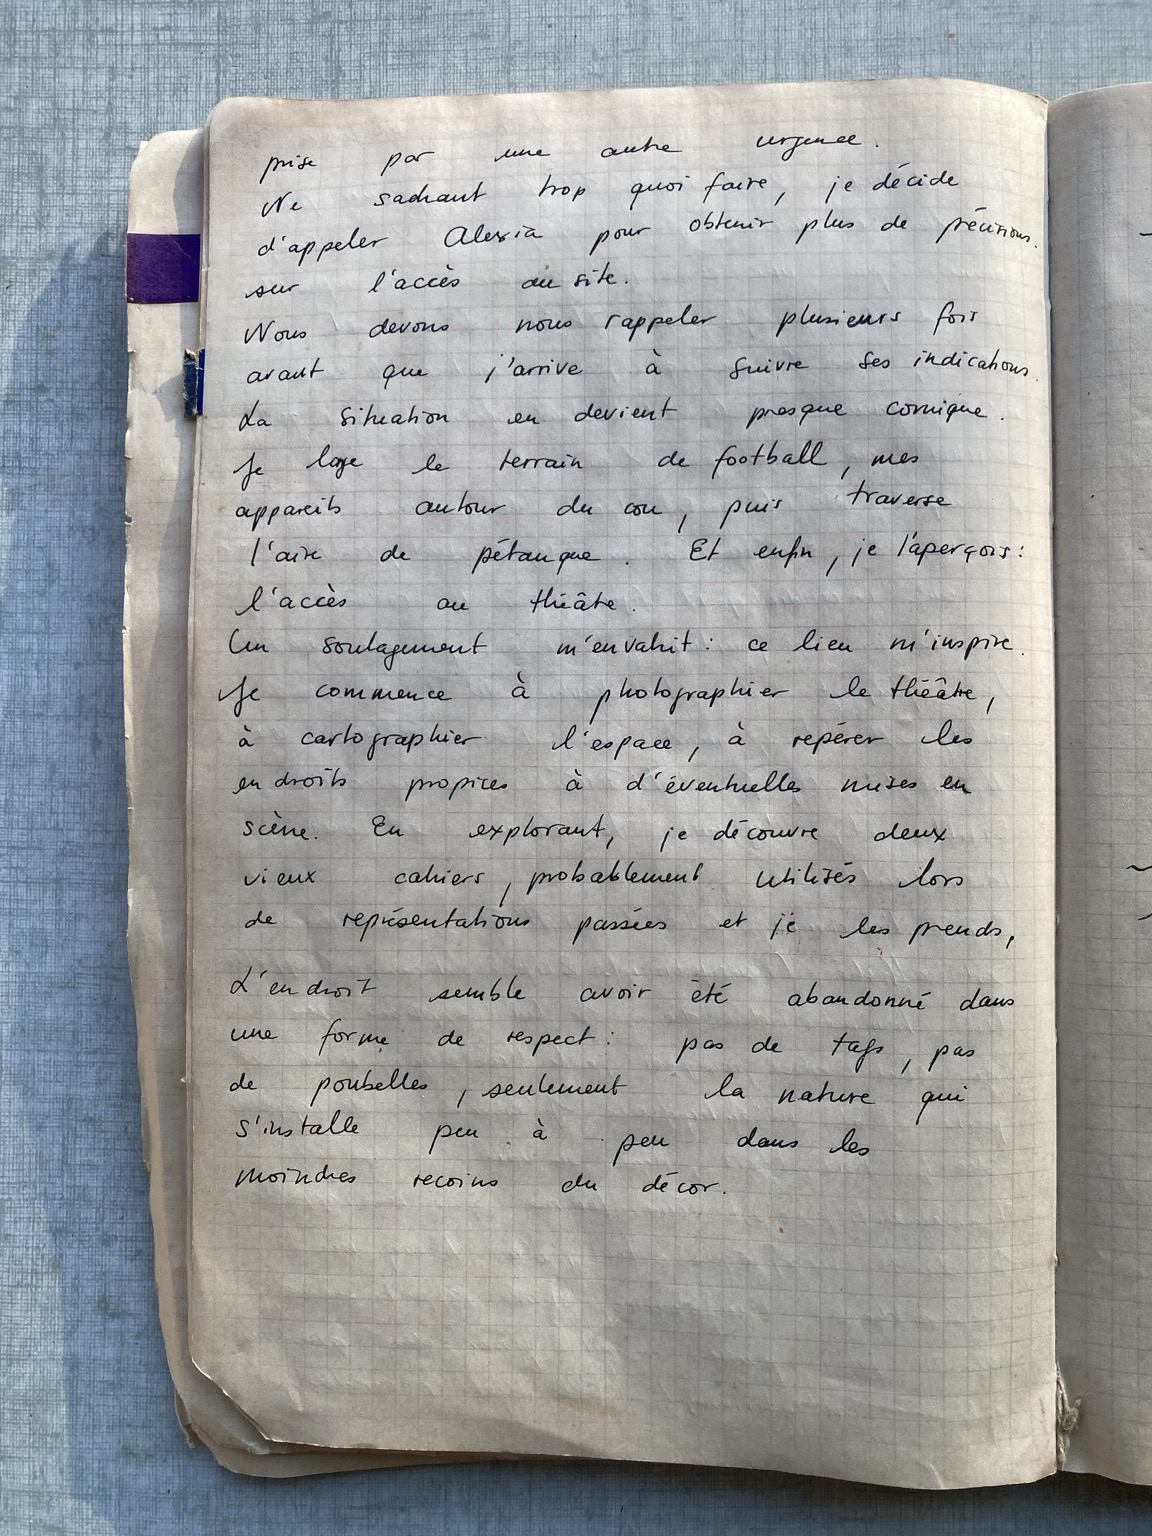 prise par une autre urgence.
Ne sachant trop quoi faire, je décide
d'appeler Alexia pour obtenir plus de précisions.
sur l'accès au site.
Nous devons nous rappeler plusieurs fois
avant que j'arrive à suivre ses indications.
La situation en devient presque comique.
Je longe le terrain de football, mes
appareils autour du cou, puis traverse
l'aire de pétanque. Et enfin, je l'aperçois:
l'accès au théâtre.
Un soulagement m'envahit: ce lieu m'inspire.
Je commence à photographier le théâtre,
à cartographier l'espace, à repérer les
endroits propices à d'éventuelles mises en
scène. En explorant, je découvre deux
vieux cahiers, probablement utilisés lors
de représentations passées et je les prends,
L'endroit semble avoir été abandonné dans
une forme de respect: pas de tags, pas
de poubelles, seulement la nature qui
s'installe peu à peu dans les
moindres recoins du décor.